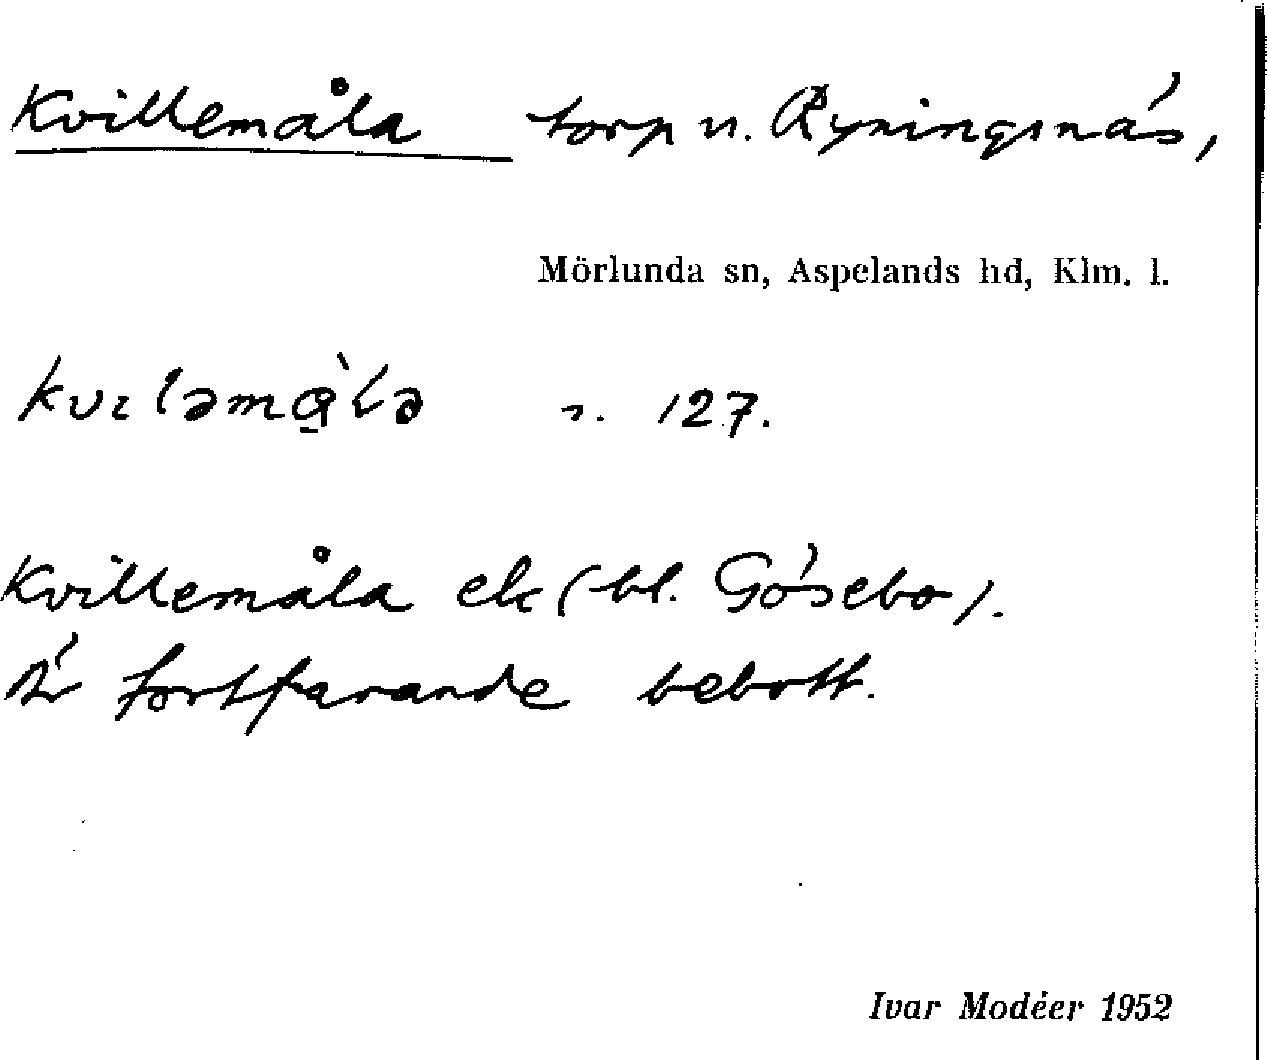 Kvillemåla torp u. Ryningsnäs,
Mörlunda sn, Aspelands hd, Klm. l.
127.
Kvillemåla ek (bl. Gösebo).
Är fortfarande bebott.
Ivar Modéer 1952